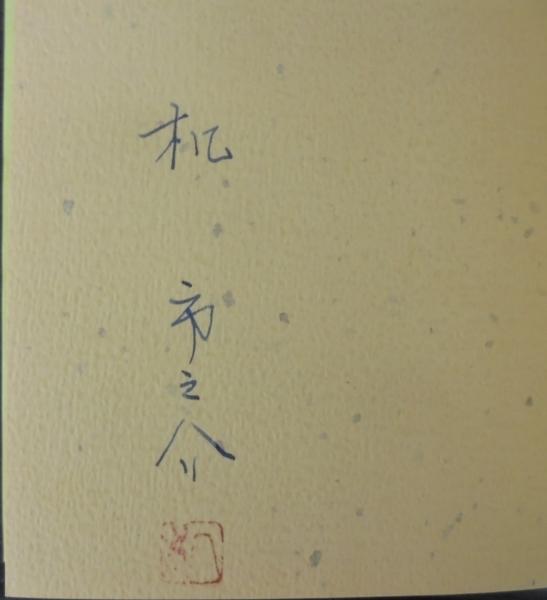 机 市之介